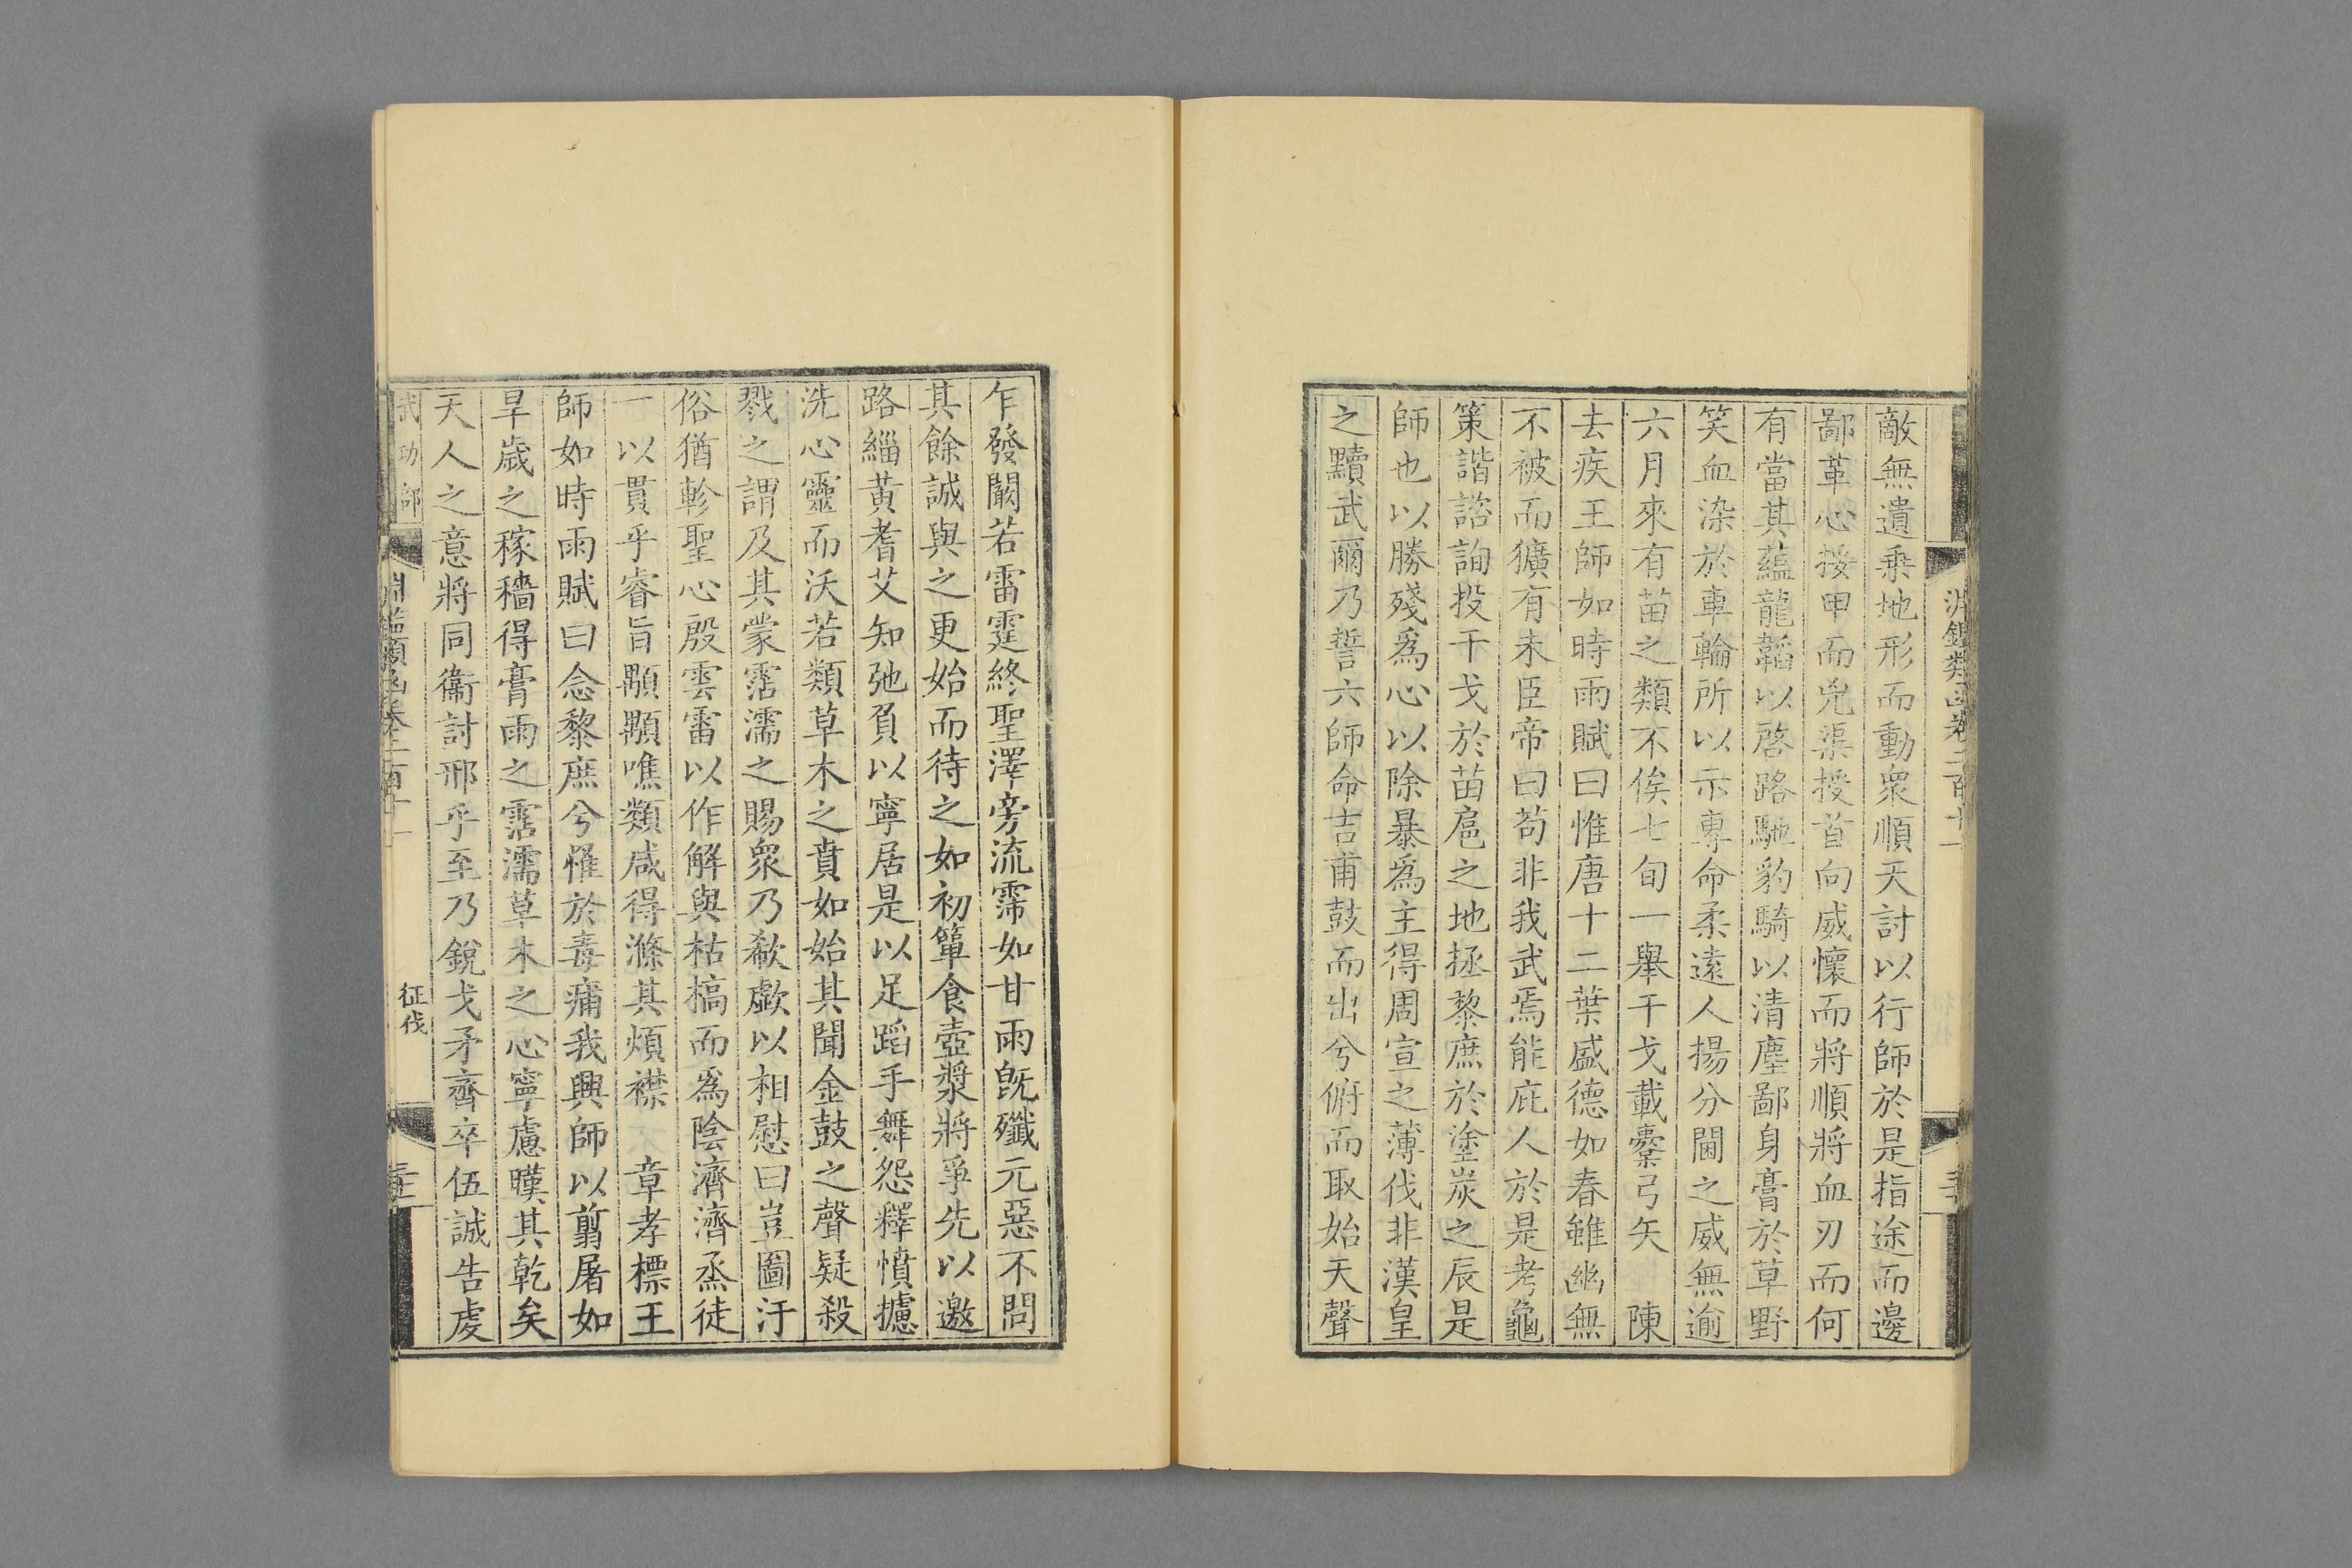 敵無遺乗地形而動衆順天討以行師於是指途而邊
鄙革心接甲而兇渠授首向威懷而將順將血刃而何
有當其蘊龍韜以啓路馳豹騎以清塵鄙身膏於草野
笑血染於車輪所以示專命柔遠人揚分閫之威無逾
六月來有苗之類不俟七旬一舉干戈載櫜弓矢 陳
去疾王師如時雨賦曰惟唐十二葉盛德如春雖幽無
不被而獷有未臣帝曰苟非我武焉能庇人於是考龜
策諧諮詢投干戈於苗扈之地拯黎庶於塗炭之辰是
師也以勝殘爲心以除暴爲主得周宣之薄伐非漢皇
之黷武爾乃誓六師命吉甫鼓而出兮俯而取始天聲
乍發闞若雷霆終聖澤旁流霈如甘雨旣殲元惡不問
其餘誠與之更始而待之如初簞食壺漿將爭先以邀
路緇黃耆艾知弛負以寧居是以足蹈手舞怨釋憤攄
洗心靈而沃若類草木之賁如始其聞金鼓之聲疑殺
戮之謂及其蒙霑濡之賜衆乃歡歔以相慰曰豈圖汙
俗猶軫聖心殷雲雷以作解與枯槁而爲陰濟濟烝徒
一以貫乎睿旨顒顒噍類咸得滌其煩襟 章孝標王
師如時雨賦曰念黎庶兮罹於毒痡我興師以翦屠如
旱歲之稼穡得膏雨之霑濡草木之心寧慮暵其乾矣
天人之意將同衞討邢乎至乃銳戈矛齊卒伍誠告虔
武功部
淵鑑類函卷二百十一
征伐